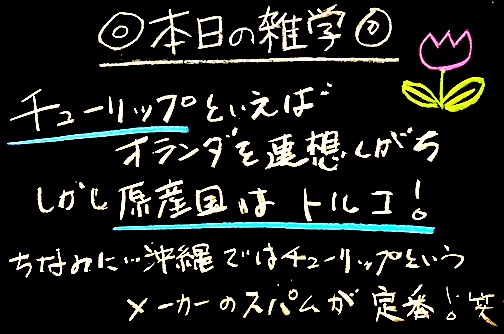 ◎本日の雑学◎
チューリップといえば
オランダを連想しがち
しかし原産国はトルコ!
ちなみに…沖縄ではチューリップという
メーカーのスパムが定番!笑